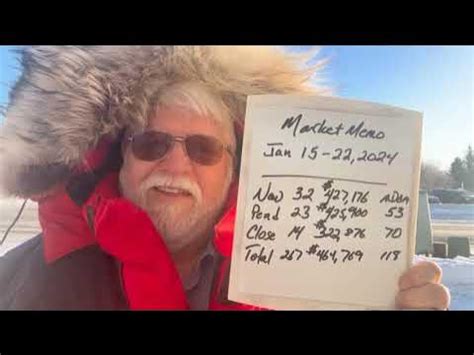 Market Memo
Jan 15-22, 2024
New 32 $427,176
Pend 23 $425,900 53
Close 14 $322,876 70
Total 267 $464,769 118